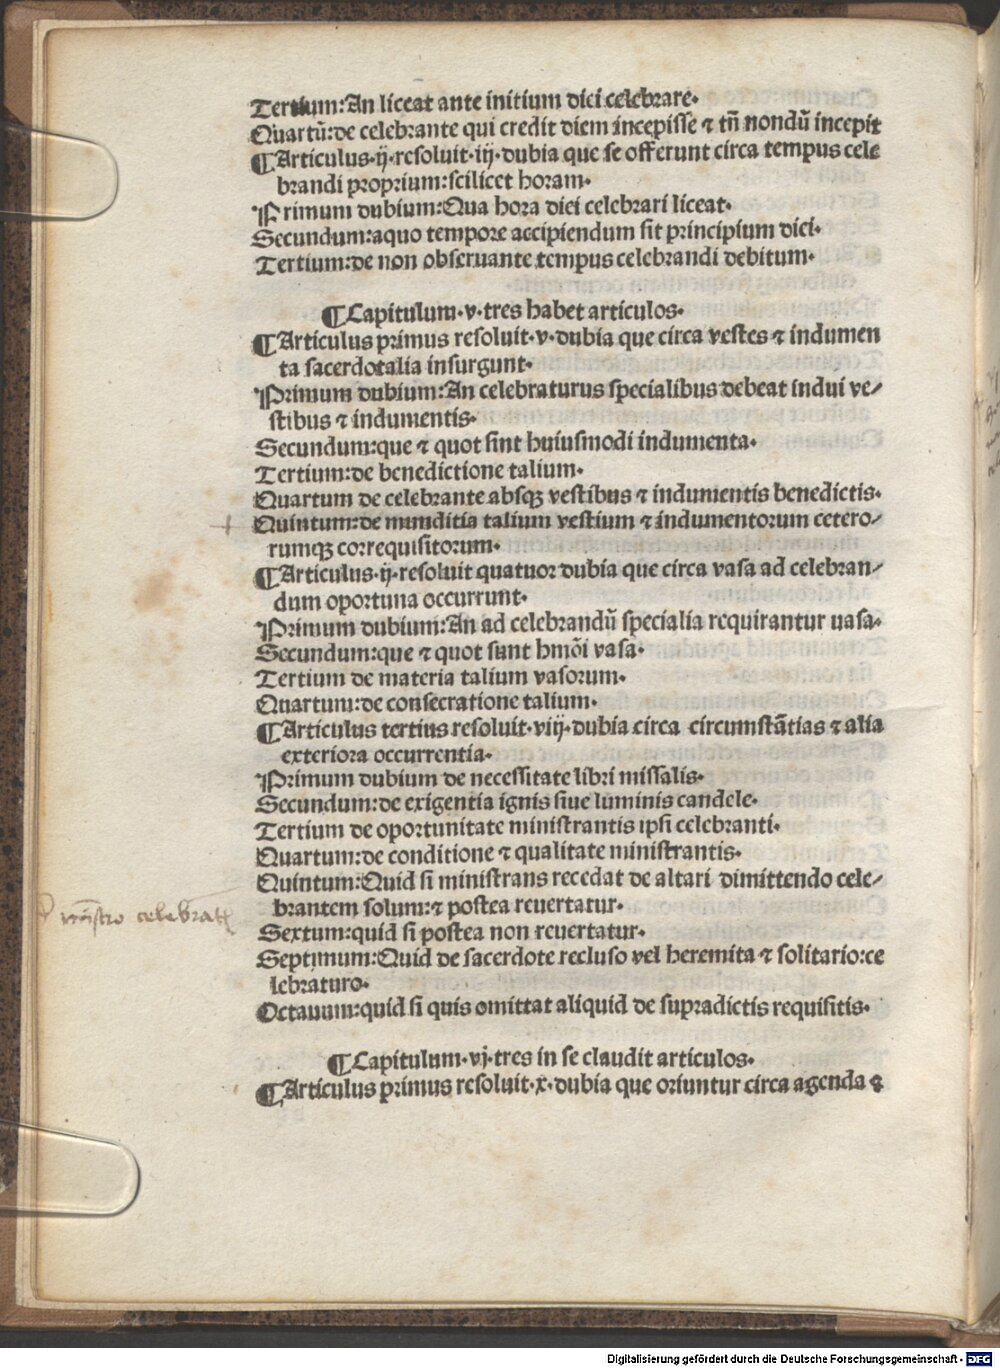 Tertium:An liceat ante initium diei celebrare.
Quartū:de celebrante qui credit diem incepisse ⁊ tñ nondū incepit
¶Articulus.ij.resoluit.iij.dubia que se offerunt circa tempus cele
brandi proprium:scilicet horam.
Primum dubium:Qua hora diei celebrari liceat.
Secundum:aquo tempore accipiendum sit principium diei.
Tertium:de non obseruante tempus celebrandi debitum.
¶Capitulum.v.tres habet articulos.
¶Articulus primus resoluit.v.dubia que circa vestes ⁊ indumen
ta sacerdotalia insurgunt.
Primum dubium:An celebraturus specialibus debeat indui ve/
stibus ⁊ indumentis.
Secundum:que ⁊ quot sint huiusmodi indumenta.
Tertium:de benedictione talium.
Quartum de celebrante absqꝫ vestibus ⁊ indumentis benedictis.
Quintum:de munditia talium vestium ⁊ indumentorum cetero/
rumqꝫ correquisitorum.
¶Articulus.ij.resoluit quatuor dubia que circa vasa ad celebran/
dum oportuna occurrunt.
Primum dubium:An ad celebrandū specialia requirantur uasa.
Secundum:que ⁊ quot sunt hmōi vasa.
Tertium de materia talium vasorum.
Quartum:de consecratione talium.
¶Articulus tertius resoluit.viij.dubia circa circumstātias ⁊ alia
exteriora occurrentia.
Primum dubium de necessitate libri missalis.
Secundum:de exigentia ignis siue luminis candele.
Tertium de oportunitate ministrantis ipsi celebranti.
Quartum:de conditione ⁊ qualitate ministrantis.
Quintum:Quid si ministrans recedat de altari dimittendo cele/
brantem solum:⁊ postea reuertatur.
Sextum:quid si postea non reuertatur.
Septimum:Quid de sacerdote recluso vel heremita ⁊ solitario:ce
lebraturo.
Octauum:quid si quis omittat aliquid de supradictis requisitis.
¶Capitulum.vj.tres in se claudit articulos.
¶Articulus primus resoluit.x.dubia que oriuntur circa agenda ⁊
Digitalisierung gefördert durch die Deutsche Forschungsgemeinschaft - DFG